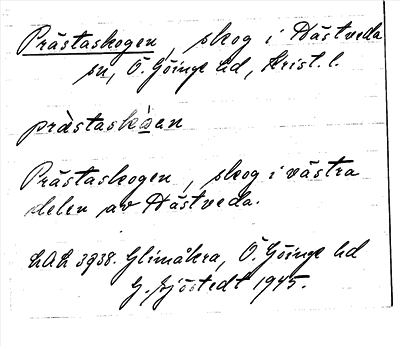 Prästaskogen, skog i Hästveda
sn, Ö. Göinge hd, Krist. l.
prästaskåen
Prästaskogen, skog i västra
delen av Hästveda.
LAL 3938. Glimåkra, Ö. Göinge hd
G. Sjöstedt 1945.